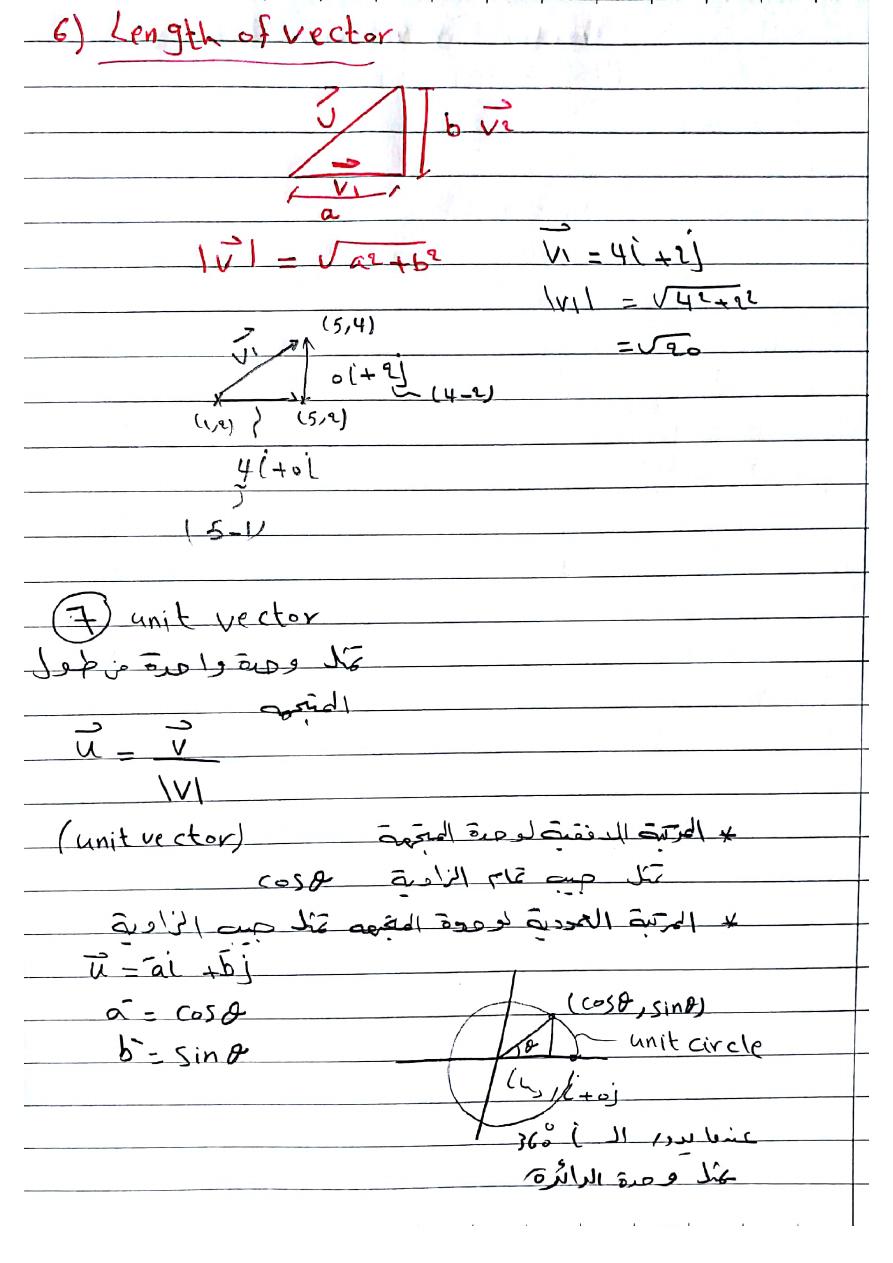 6) Length of vector
V
b V2
V1
a
|V| = √a²+b²
V1 = 4i + 2j
|V1| = √4²+2²
= √20
(5,4)
V1
0i + 2j
(4-2)
(1,2) (5,2)
4i + 0j
(5-1)
7 unit vector
تمثل وحدة واحدة من طول
المتجهه
u = V
|V|
* المركبة الافقية لوحدة المتجهة (unit vector)
تمثل جيب تمام الزاوية cosθ
* المركبة العمودية لوحدة المتجهه تمثل جيب الزاوية
u = a-i + b-j
a- = cosθ
b- = sinθ
(cosθ, sinθ)
θ unit circle
i + 0j
عندما يدور ال i 360°
تمثل وحدة الدائرة